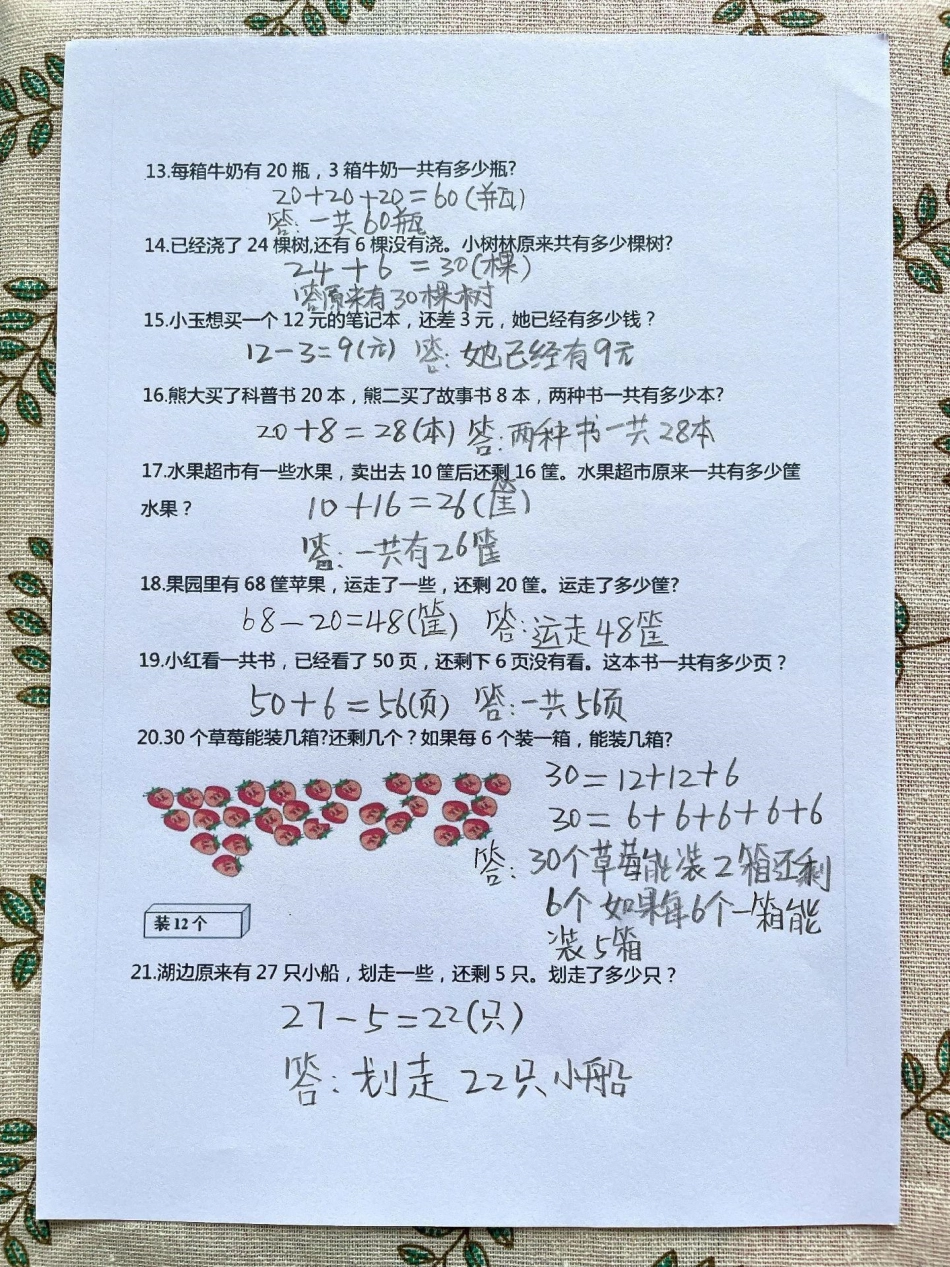 13.每箱牛奶有 20 瓶，3 箱牛奶一共有多少瓶?
20+20+20=60(瓶)
答：一共60瓶
14.已经浇了 24 棵树,还有 6 棵没有浇。小树林原来共有多少棵树?
24+6=30(棵)
答原来有30棵树
15.小玉想买一个 12 元的笔记本，还差 3 元，她已经有多少钱？
12-3=9(元) 答：她已经有9元
16.熊大买了科普书 20 本，熊二买了故事书 8 本，两种书一共有多少本?
20+8=28(本) 答：两种书一共28本
17.水果超市有一些水果，卖出去 10 筐后还剩 16 筐。水果超市原来一共有多少筐
水果？ 10+16=26(筐)
答：一共有26筐
18.果园里有 68 筐苹果，运走了一些，还剩 20 筐。运走了多少筐?
68-20=48(筐) 答：运走48筐
19.小红看一共书，已经看了 50 页，还剩下 6 页没有看。这本书一共有多少页？
50+6=56(页) 答：一共56页
20.30 个草莓能装几箱?还剩几个？如果每 6 个装一箱，能装几箱?
30=12+12+6
30=6+6+6+6+6
答：30个草莓能装2箱还剩
6个 如果每6个一箱能
装5箱
装12个
21.湖边原来有 27 只小船，划走一些，还剩 5 只。划走了多少只？
27-5=22(只)
答：划走22只小船